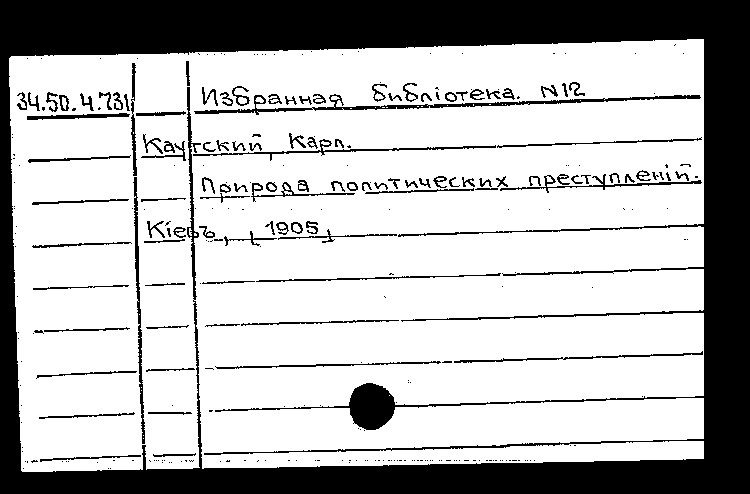 34.50.4.731 Избранная библіотека. N12
Каутский, Карл.
Природа политических преступленій.
Кіевъ, [1905]